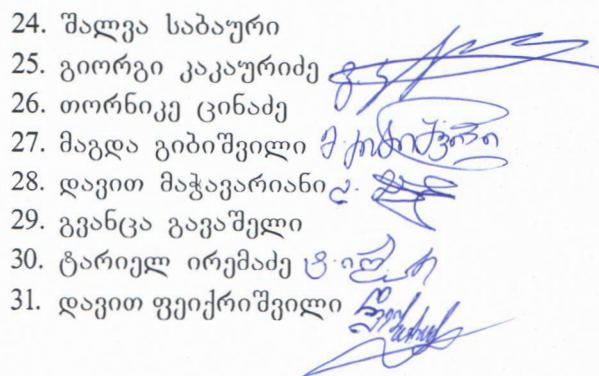 24. შალვა საბაური
25. გიორგი კაკაურიძე
26. თორნიკე ცინაძე
27. მაგდა გიბიშვილი
28. დავით მაჭავარიანი
29. გვანცა გავაშელი
30. ტარიელ ირემაძე
31. დავით ფეიქრიშვილი